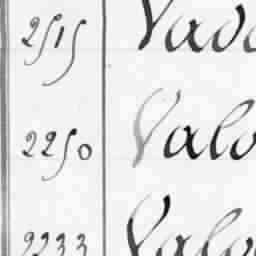 2515 Vado
2250 Valo
2233 Valo